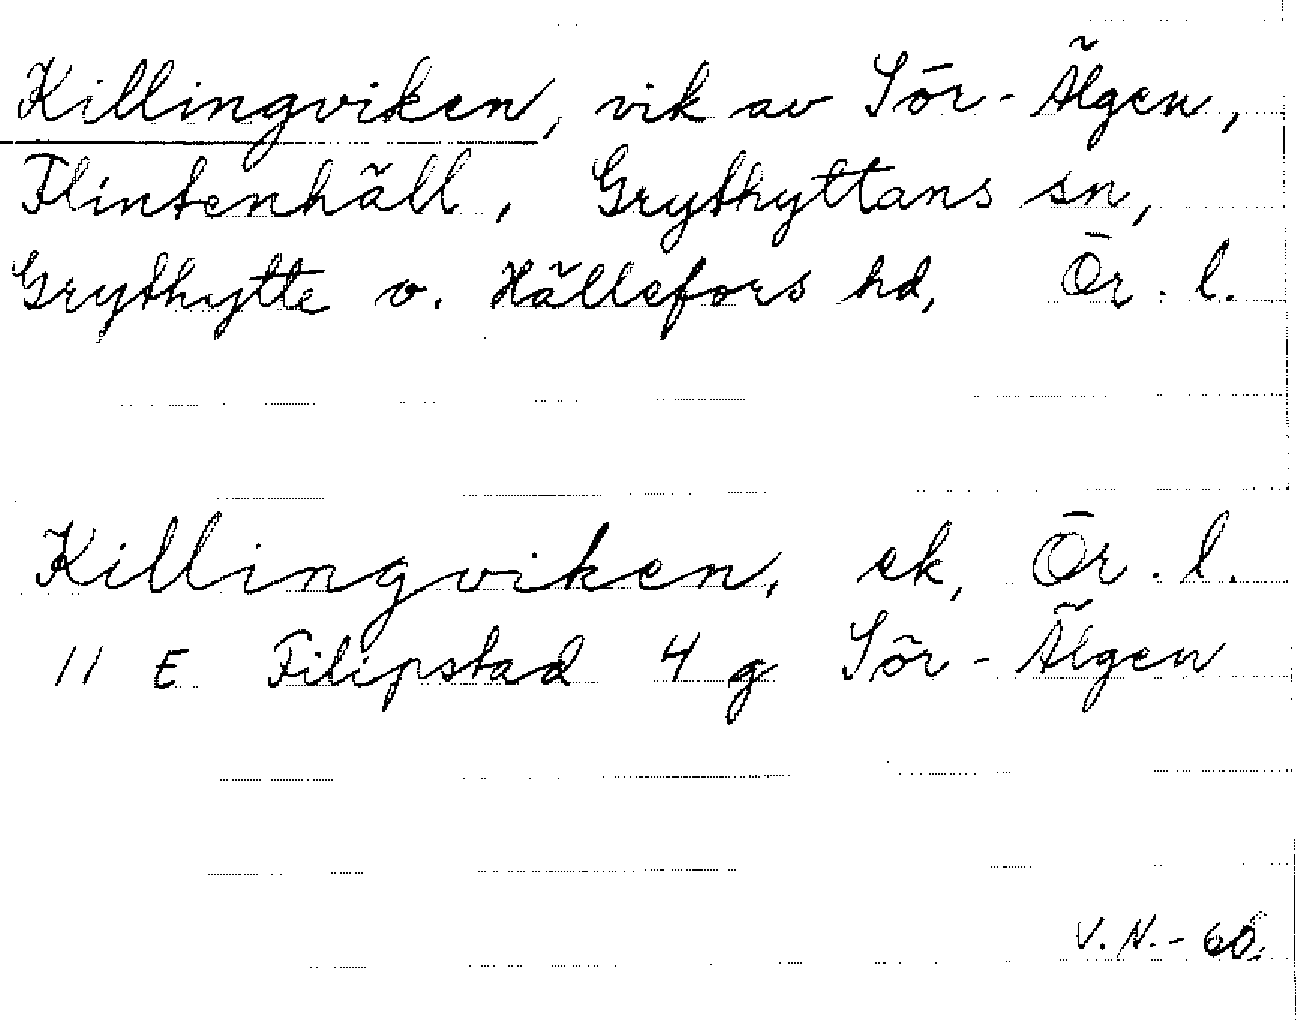 Killingviken, vik av Sör-Älgen,
Flintenhäll, Grythyttans sn,
Grythytte o. Hällefors hd, Ör. l.
Killingviken, ek, Ör. l.
11 E Filipstad 4 g Sör-Älgen
V. N. -